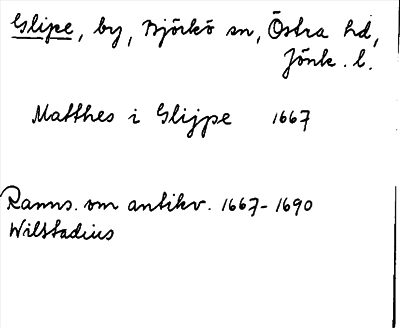 Glipe, by, Björkö sn, Östra hd,
Jönk. l.
Matthes i Glijpe 1667
Ranns. om antikv. 1667-1690
Wilstadius